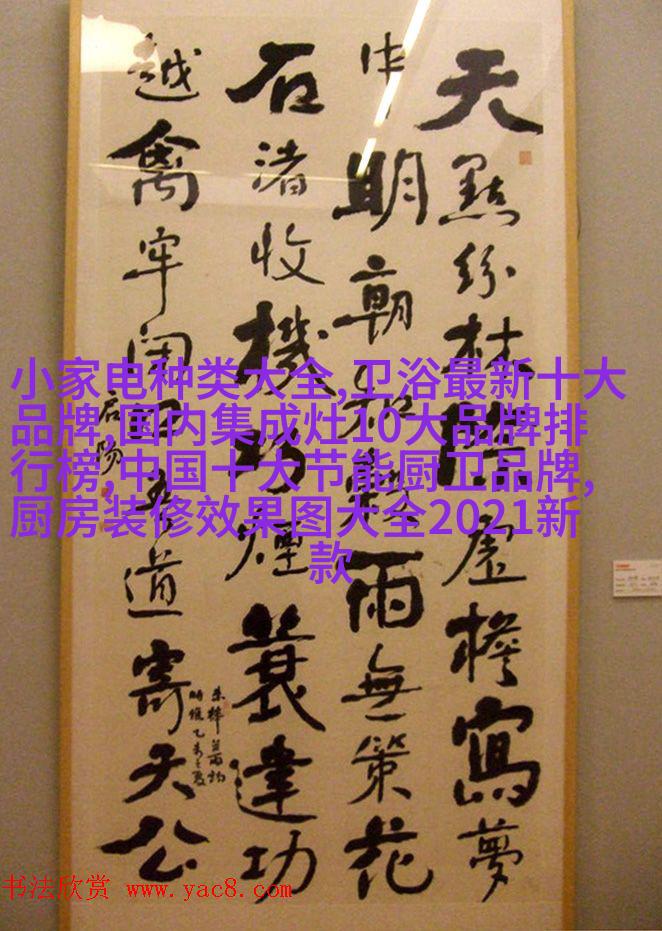 天點紛林際虛檐寫夢
中明朝知穀雨無策花
石渚收機巧煙蓑建功
越禽牢閉口吾道寄天公
小家电种类大全,卫浴最新十大
品牌,国内集成灶10大品牌排
行榜,中国十大节能厨卫品牌,
厨房装修效果图大全2021新
款
书法欣赏 www.yac8.com